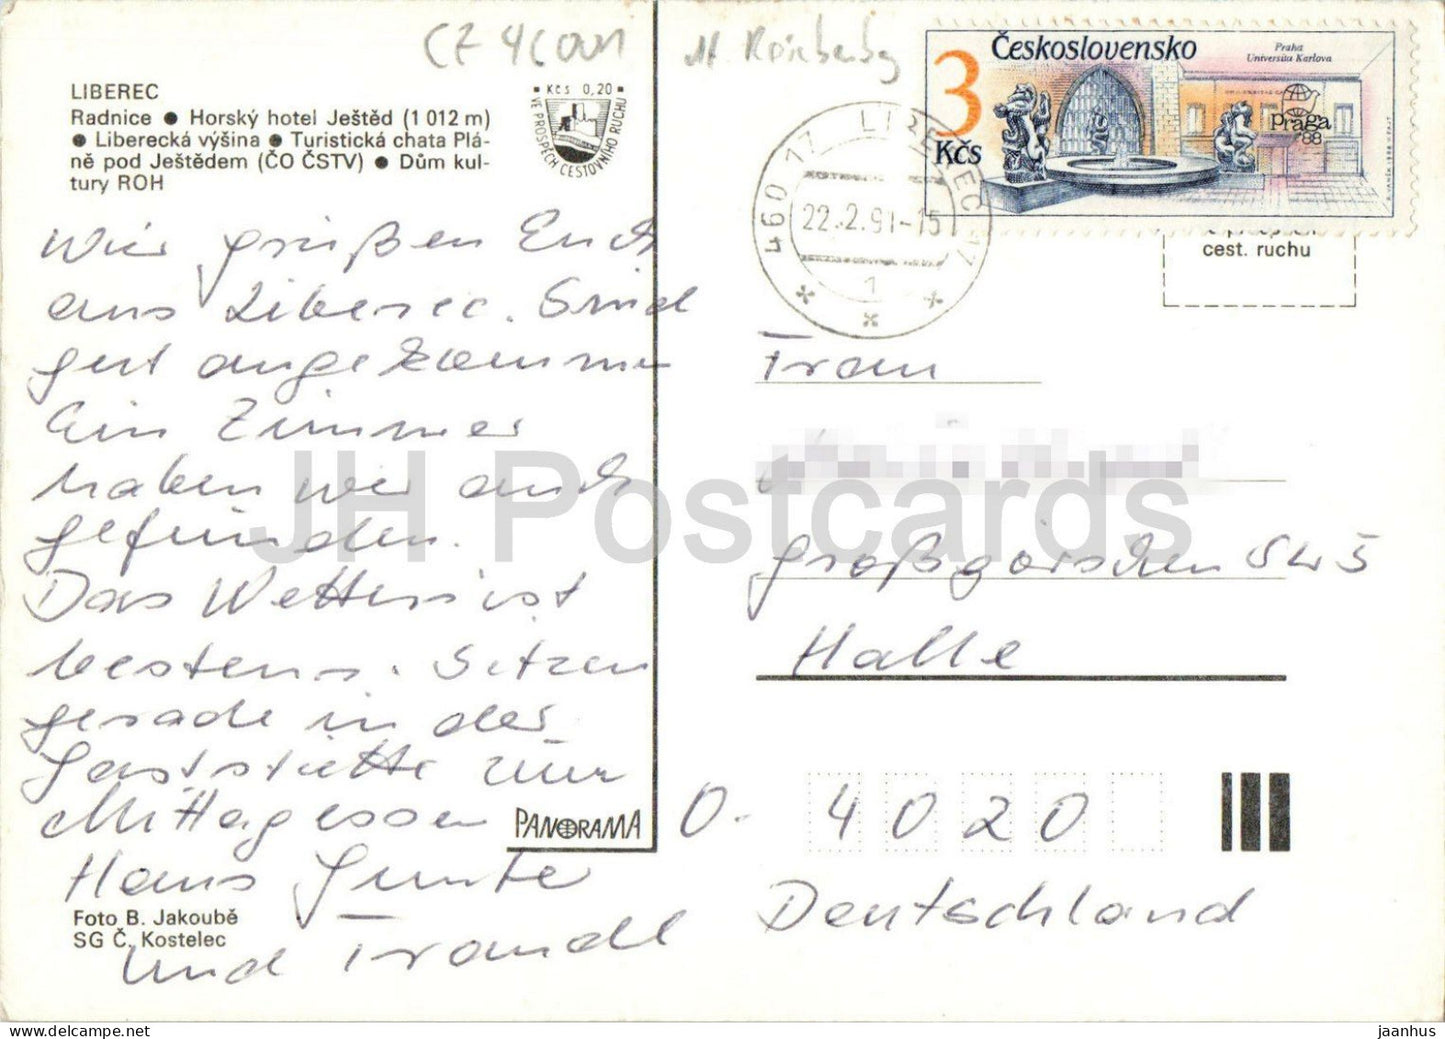 CZ 4C001
LIBEREC
Radnice ● Horský hotel Ještěd (1 012 m)
● Liberecká výšina ● Turistická chata Plá-
ně pod Ještědem (ČO ČSTV) ● Dům kul-
tury ROH
Kčs 0,20
VE PROSPĚCH CESTOVNÍHO RUCHU
Československo
Praha
Universita Karlova
3
Kčs
praga
'88
460 17 LIBEREC 17
22.-2.91-15
1
cest. ruchu
Wir grüßen Euch
aus Liberec. Sind
gut angekommen
Ein Zimmer
haben wir auch
gefunden.
Das Wetter ist
bestens. Sitzen
gerade in der
Gaststätte zum
Mittagessen
Hans Günter
und Traudl
Frau
Großgörschen Str 5
Halle
O-4020
Deutschland
PANORAMA
Foto B. Jakoubě
SG Č. Kostelec
JH Postcards
jaanhus